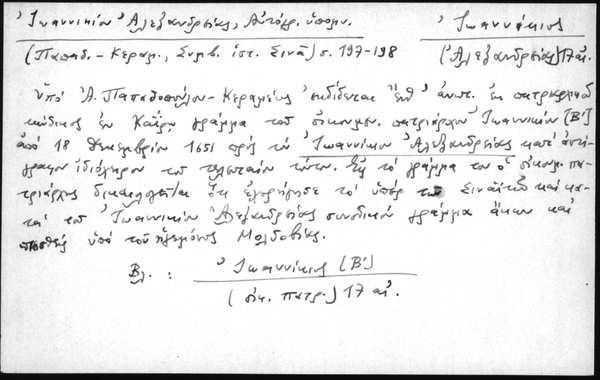 Ἰωαννικίου Ἀλεξανδρείας, Αὐτόγρ. ὑπομν.
Ἰωαννίκιος
(Παπαδ.-Κεραμ., Συμβ. ἱστ. Σινᾶ) σ. 197-198
(Ἀλεξανδρείας) 17 αἰ.
Ὑπό Ἀ. Παπαδοπούλου-Κεραμέως ἐκδίδεται ἐνθ' ἀνωτ. ἐκ πατριαρχικοῦ
κώδικος ἐν Καΐρῳ γράμμα τοῦ οἰκουμεν. πατριάρχου Ἰωαννικίου [Β']
ἀπό 18 Δεκεμβρίου 1651 πρός τόν Ἰωαννίκιον Ἀλεξανδρείας κατ' ἀντί-
γραφον ἰδιόγραφον τοῦ τελευταίου τούτου. Εἰς τό γράμμα του ὁ οἰκουμ. πα-
τριάρχης δικαιολογεῖται ὅτι ἐχορήγησε τό ὑπέρ τῶν Σιναϊτῶν καί κα-
τά τοῦ Ἰωαννικίου Ἀλεξανδρείας συνοδικόν γράμμα ἄκων καί
πιεσθείς ὑπό τοῦ ἡγεμόνος Μολδοβίας.
Βλ. : Ἰωαννίκιος [Β']
(οἰκ. πατρ.) 17 αἰ.